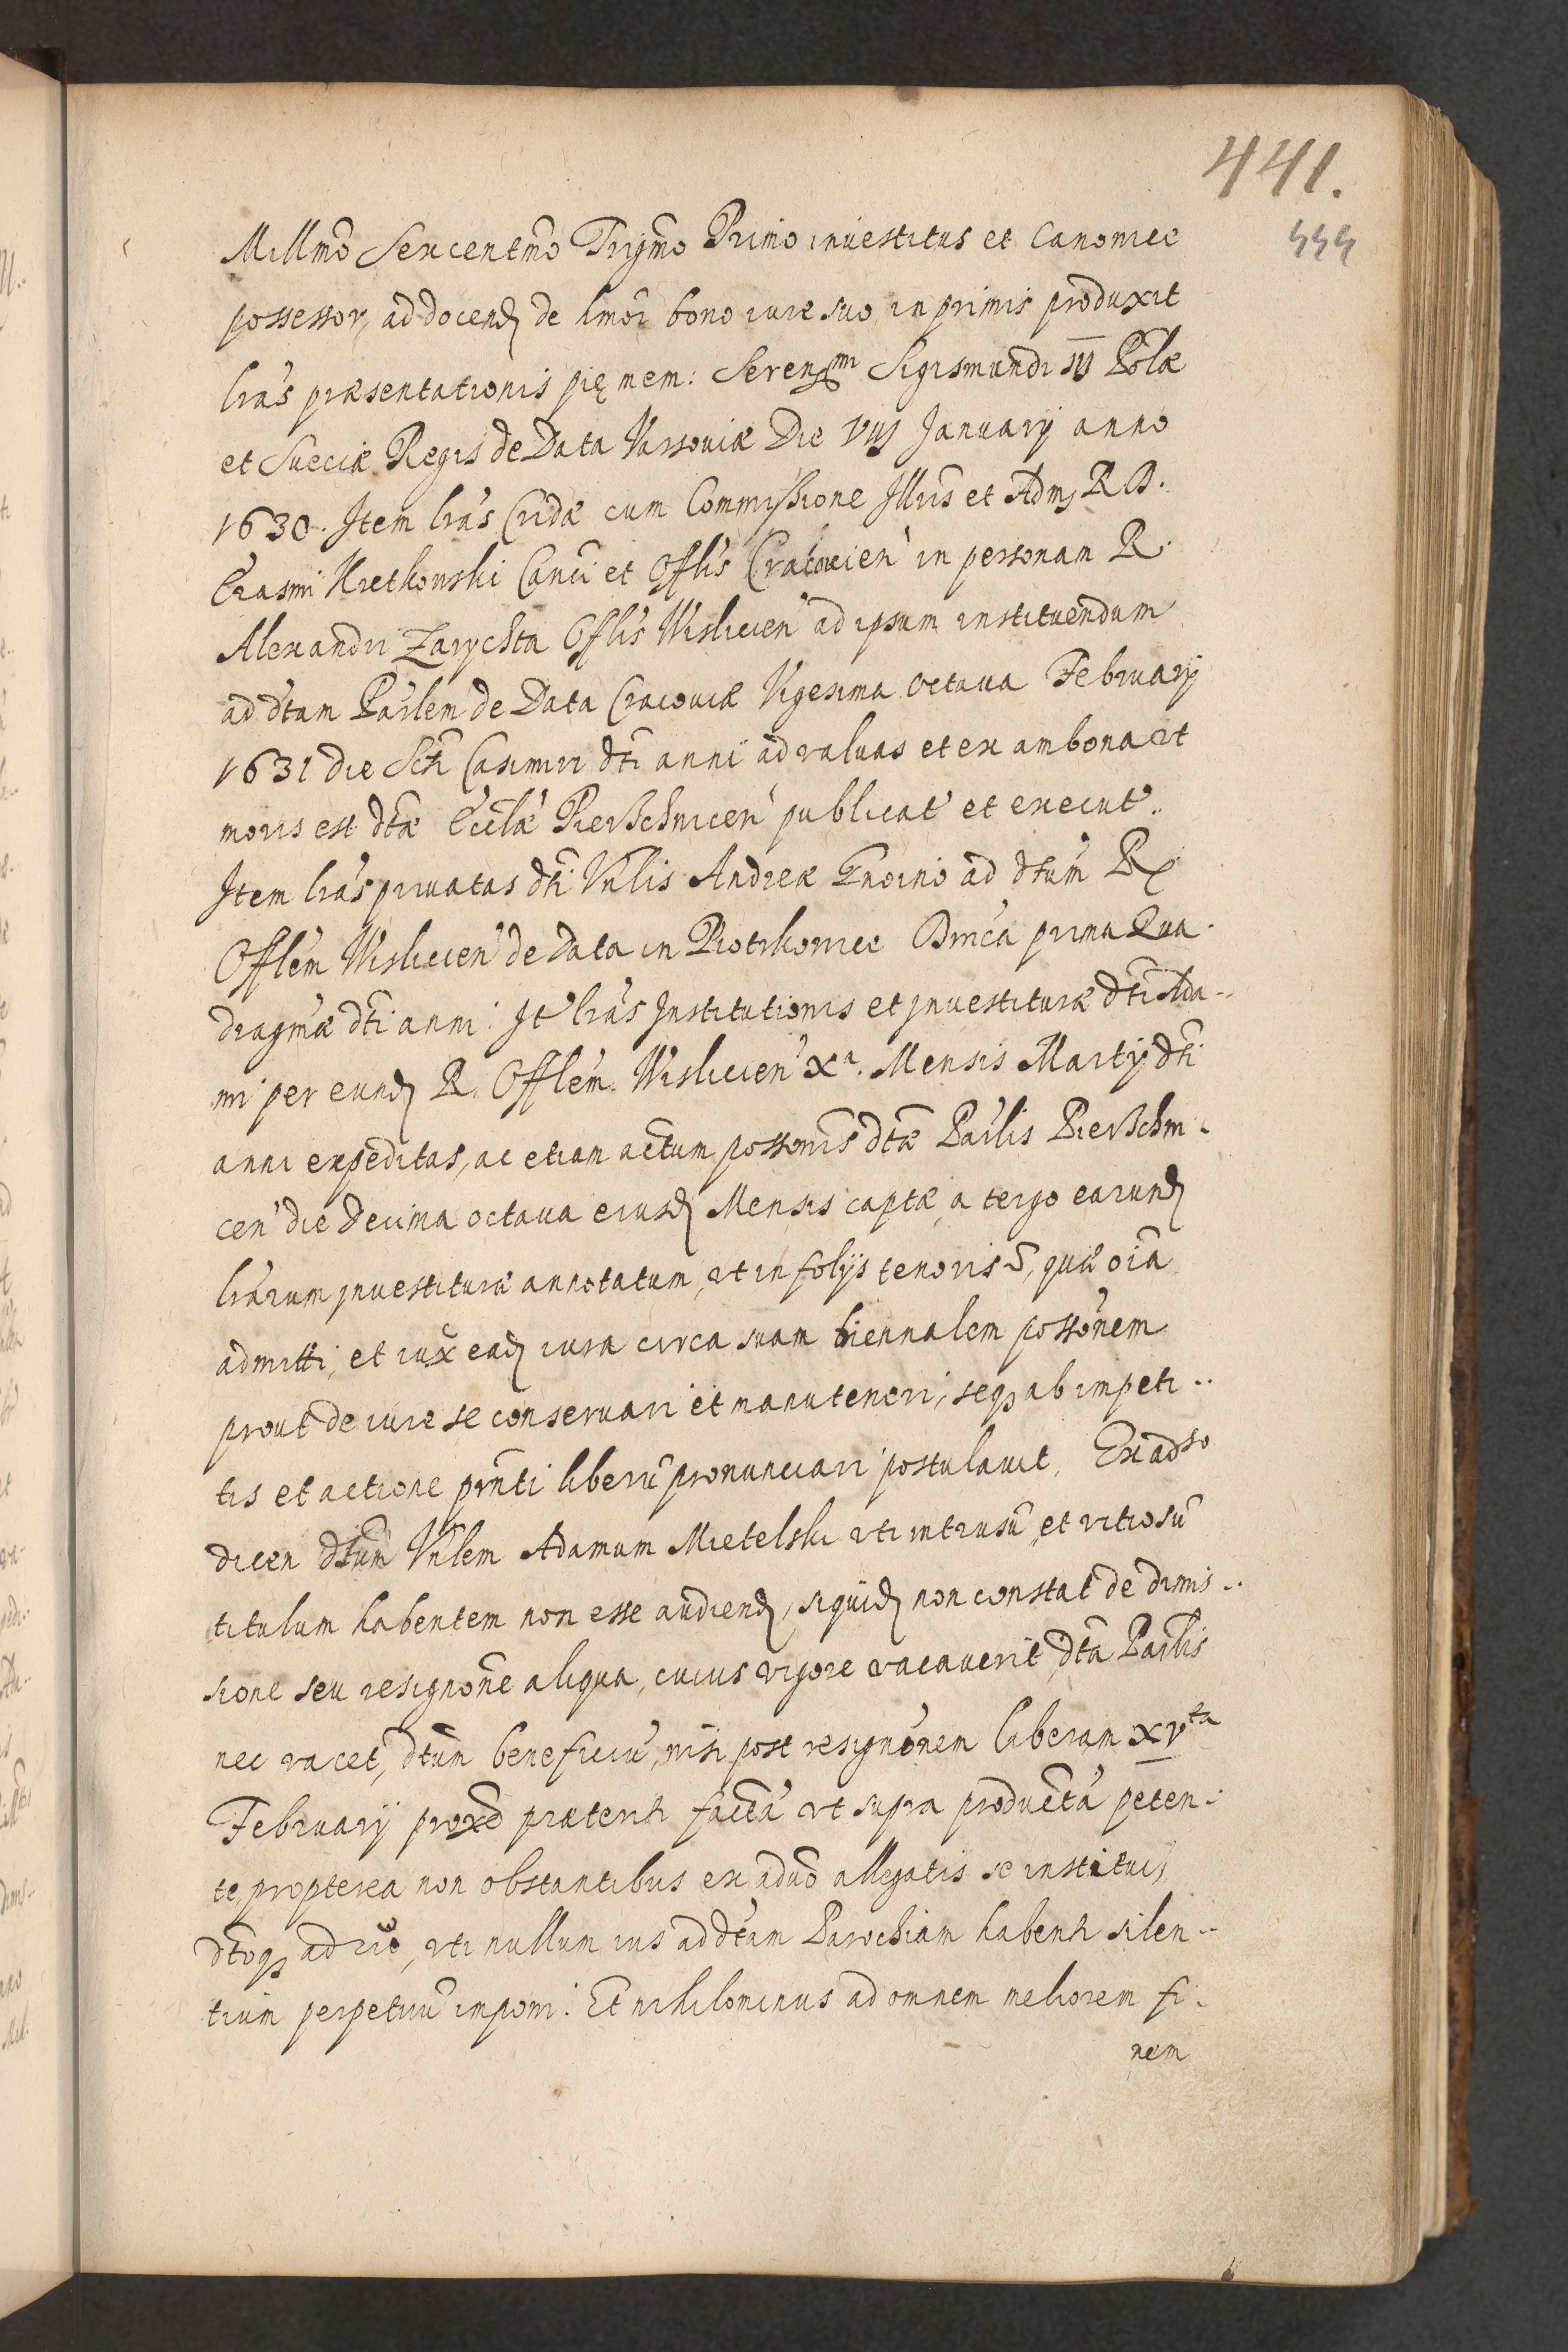 441.
444
Millmo Sexcentmo Trigmo Primo investitus et Canonice
possessor, ad docend de hmoi bono iure suo, in primis produxit
lras præsentationis pię mem: Serenssmi Sigismundi III Polæ
et Sueciæ Regis de Data Varsoviæ Die VIII January anno
1630. Item lras Cridæ cum Commissione Illris et Adm R D.
Erasmi Kretkowski Canci et Offlis Cracovien in personam R.
Alexandri Zarychta Offlis Wislicien ad ipsum instituendum
ad dtam Parlem de Data Cracoviæ Vigesima octava February
1631 die Scti Casimiri dti anni ad valvas et ex ambona ut
moris est dtæ Ecclæ Pierschnicen publicat et execut..
Item lras privatas dti Vnlis Andreæ Gnoino ad dtum R
Offlem Wislicien de Data in Piotrkowice Dnica prima Qua-
dragmæ dti anni: It lras Institutionis et jnvestituræ dti Ada-
mi per eund R. Offlem Wislicien Xa. Mensis Martij dti
anni expeditas, ac etiam actum possonis dtæ Parlis Pierschni-
cen die Decima octava eiusd Mensis captæ a tergo earund
lrarum jnvestituræ annotatum, ut in folijs tenoris s, quæ oia
admitti, et iux ead iura circa suam biennalem possonem
prout de iure se conservari et manuteneri, seq ab impeti-
tis et actione pnti liberu pronunciari postulavit. Ex adso
dicen dtum Vnlem Adamum Mietelski uti intrusu et vitiosu
titulum habentem non esse audiend, siquid non constat de dimis-
sione seu resignone aliqua, cuius vigore vacaverit dta Parlis
nec vacet, dtum beneficiu, nisi post resignonem liberam XVta
February proxo præterit facta ut supra producta peten-
te, propterea non obstantibus ex advo allegatis se institui,
dtoq adrio, uti nullum ius ad dtam Parochiam habenti silen-
tium perpetuu imponi. Et nihilominus ad omnem meliorem fi-
nem